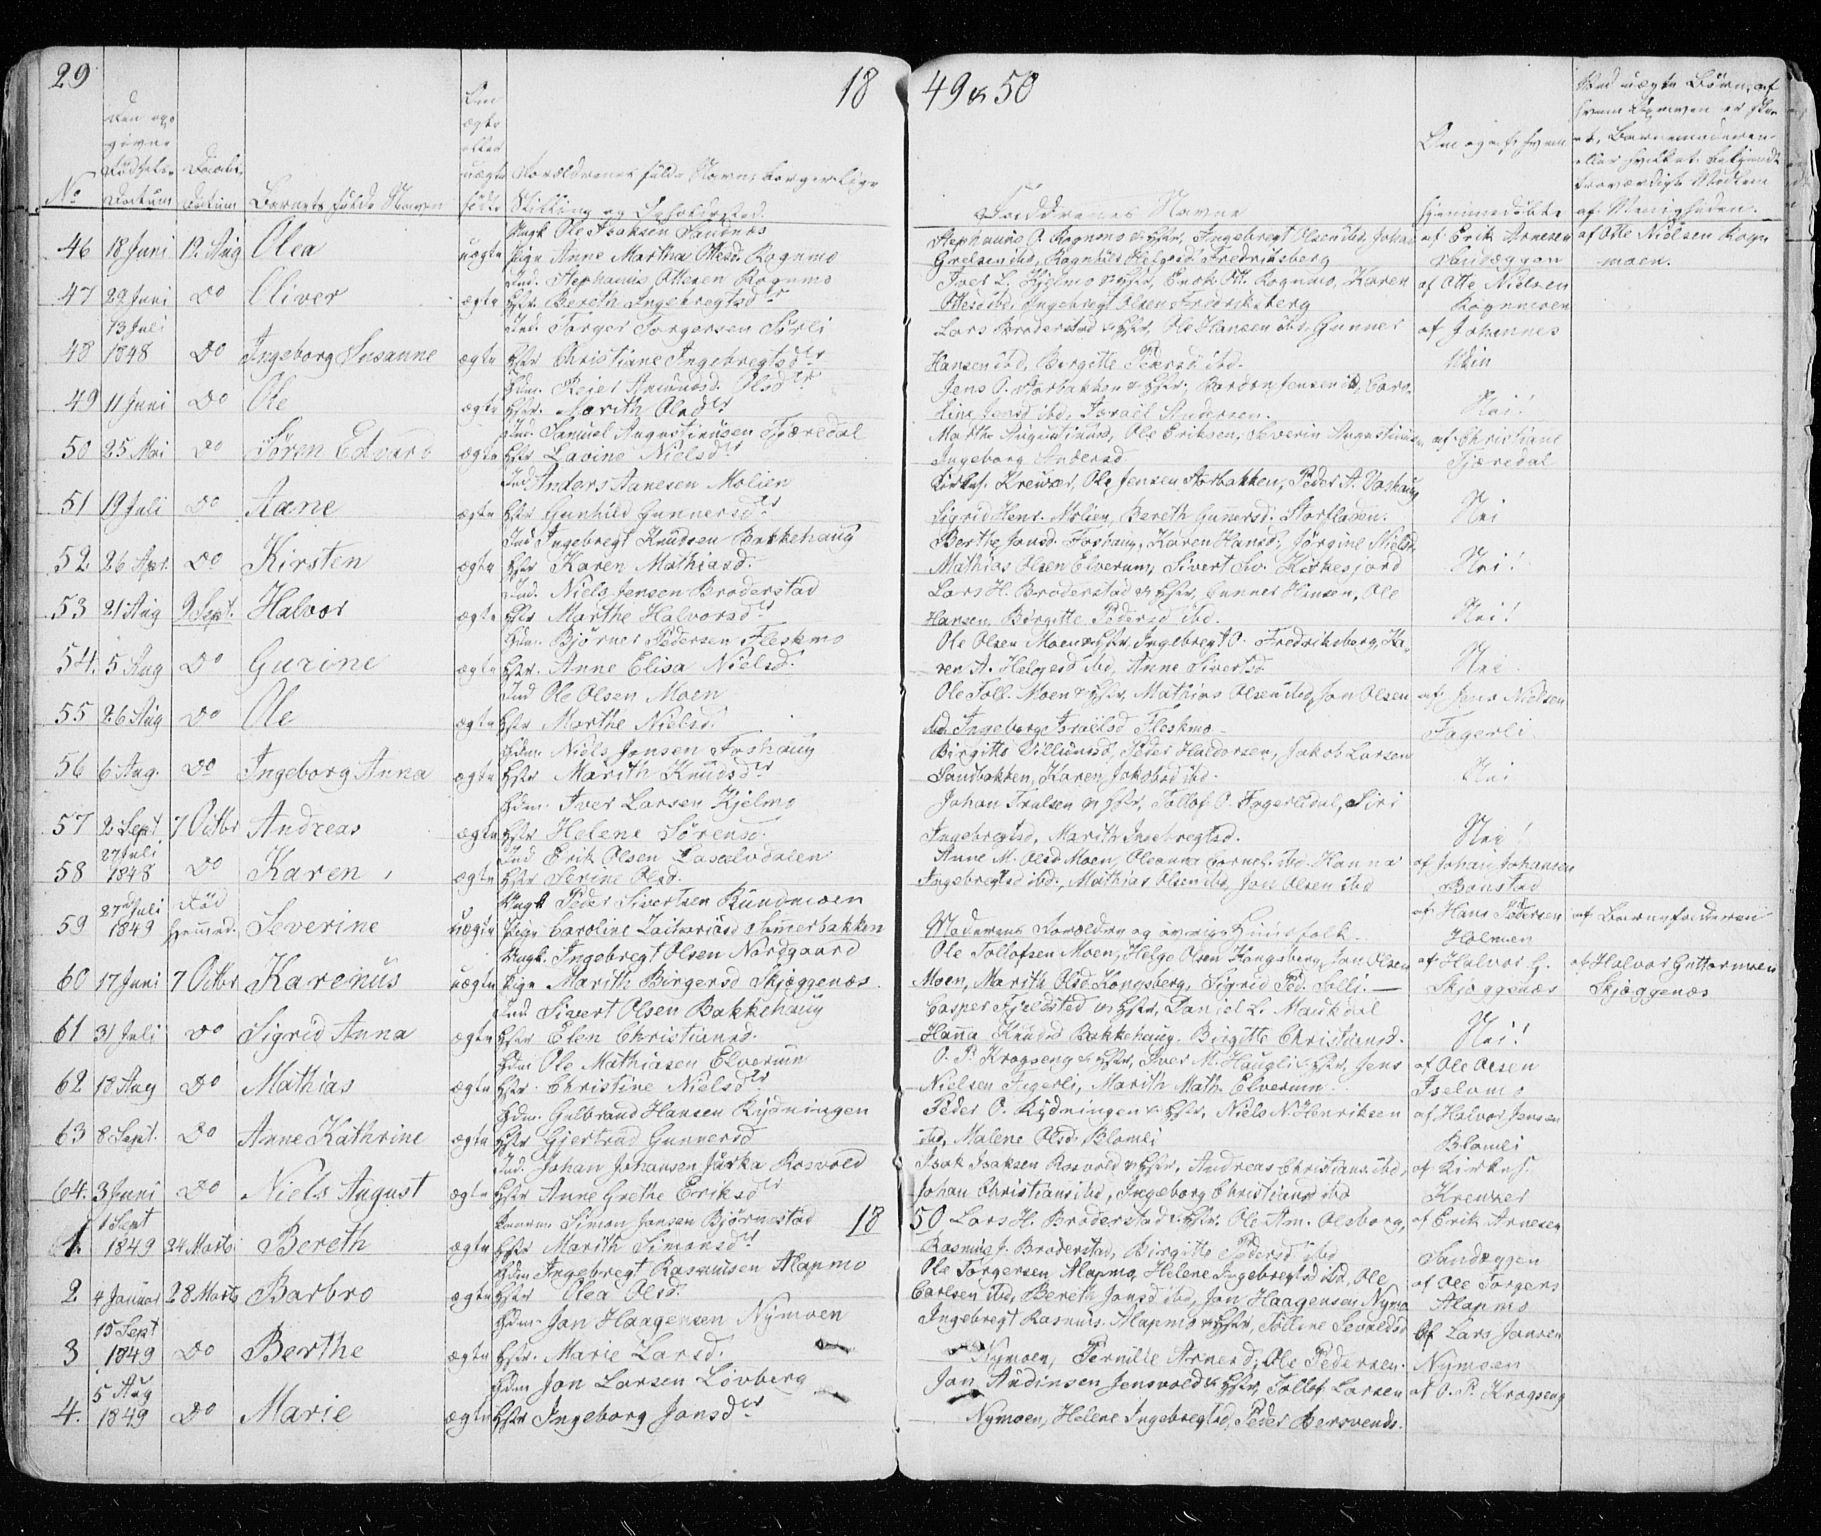 29 18 49 & 50
No
Den opgivne Fødsels-Datum
Daabs-Datum
Barnets fulde Navn
Om ægte eller uægte født
Forældrenes fulde Navne, borgerlige Stilling og Opholdssted.
Faddrenes Navne
Om og af hvem hjemmedøbt
46 18 Juni 12 Aug Olea uægte Ungk Ole Isaksen Sandnæs
Pige Anne Martha Ottesd. Rognmo
Stephanus O. Rognmo & Hstr, Ingebregt Olsen ibd, Johan
Grelsen ibd, Ragnhild Helgesd Fredriksberg
af Erik Arnesen Sandeggen
af Otte Nielsen Rognmoen.
47 22 Juni Do Oliver ægte Ind. Stephanus Ottesen Rognmo
Hstr. Bereth Ingebregtsdtr
Iver L. Kjelmo & Hstr, Enok Ott. Rognmo, Karen
Ottesd ibd. Ingebregt Olsen Fredriksberg
af Otte Nielsen Rognmoen
48 13 Juli 1848 Do Ingeborg Susanne ægte Ind: Torger Torgersen Sørli
Hstr Christiane Ingebregtsdtr
Lars Broderstad & Hstr, Ole Hansen ibd, Gunner
Hansen ibd, Birgitte Pedersd ibd.
af Johannes Skin
49 11 Juni Do Ole ægte Hdm. Reier Amundsd. Olsd
Hstr. Marith Olsdtr
Jens O. Storbakken & Hstr. Bardon Jensen ib, Caro-
line Jensd ibd, Israel Andersen.
Nei!
50 25 Mai Do Søren Edvard ægte Ind. Samuel Augustinusen Fjæredal
Hstr Lavine Nielsdtr
Marthe Augustinusd, Ole Eriksen, Severin Augustinusen
Ingeborg Andersd
af Christiane Fjæredal
51 19 Juli Do Aane ægte Ind Anders Aanesen Molien
Hstr Gunhild Gunnersdtr
Kirkes. Kreutzer, Ole Jensen Storbakken, Peder A. Vashaug
Sigrid Henr. Molien, Bereth Gunersd. Storfladen.
Nei
52 26 Apr. Do Kirsten ægte Ind Ingebregt Knudsen Bakkehaug
Hstr Karen Mathiasd.
Berthe Jonsd. Foshaug, Karen Hansd, Jørgine Nielsd
Mathias Olsen Elverum, Sivert Siv. Kirkesjord
Nei!
53 21 Aug 9 Sept. Halvor ægte Ind. Niels Jensen Broderstad
Hstr Marthe Halvorsdtr
Lars H. Broderstad & Hstr, Gunner Hansen, Ole
Hansen, Birgitte Pedersd ibd.
Nei!
54. 5 Aug Do Gurine ægte Hdm. Bjørner Pedersen Fleskmo
Hstr. Anne Elisa Nielsd.
Ole Olsen Moen & Hstr, Ingebregt O. Fredriksberg, Ka-
ren A. Helgesd ibd, Anne Sivertsd
Nei
55 26 Aug Do Ole ægte Ind Ole Olsen Moen
Hstr Marthe Nielsd.
Ole Toll. Moen & Hstr, Mathias Olsen ibd, Jon Olsen
ibd. Ingeborg Israelsd Fleskmo
af Jens Nielsen Fagerli
56 6 Aug. Do Ingeborg Anna ægte Hdm. Niels Jonsen Foshaug
Hstr Marith Knudsdtr
Birgitte Sillumsd, Peder Haldorsen, Jakob Larsen
Sandbakken, Karen Jakobsd ibd.
Nei
57 2 Sept 7 Octbr Andreas ægte Hdm. Iver Larsen Kjelmo
Hstr Helene Sørensd.
Johan Trulsen & Hstr, Tollof O. Fagerlidal, Siri
Ingebregtsd, Marith Ingebregtsd.
Nei!
58 27 Juli 1848 Do Karen ægte Ind Erik Olsen Laxelvdalen
Hstr Serine Olsd.
Anne M. Olsd Moen, Oleana Cornel. ibd. Hanna
Ingebregtsd ibd., Mathias Olsen ibd, Jon Olsen ibd
af Johan Johansen Bonstad
59 27 Juli 1849 Død Hjemmed. Severine uægte Ungk Peder Sivertsen Rundmoen
Pige Caroline Zachariasd Sommerbakken
Moderens Forældre og øvrige Huusfolk.
af Hans Pedersen Holmen
af Barnefaderen
60 17 Juni 7 Octbr Karenus uægte Ungk. Ingebregt Olsen Nordgaard
Pige Marith Birgersd Skjæggenæs.
Ole Tollofsen Moen, Helge Olsen Kongsberg, Jon Olsen
Moen, Marith Olsd Kongsberg, Sigrid Ped. Solli.
af Halvor G. Skjæggenæs
af Halvor Guttormsen Skjæggenæs
61 31 Juli Do Sigrid Anna ægte Ind. Sivert Olsen Bakkehaug
Hstr Elen Christiansd.
Casper Fjeldsted & Hstr, Daniel L. Maukdal
Hanna Knudsd Bakkehaug. Birgitte Christiansd.
Nei!
62 18 Aug Do Mathias ægte Hdm Ole Mathiasen Elverum
Hstr. Christine Nielsdtr
O. P. Krogseng & Hstr, Iver M. Haugli & Hstr, Jens
Nielsen Fagerli, Marith Math. Elverum
af Ole Olsen Iselomo
63 8 Sept. Do Anne Kathrine ægte Hdm. Gulbrand Hansen Rydningen
Hstr Gjertrud Gunnersd
Peder O. Rydningen & Hstr, Niels N. Henriksen
ibd, Malene Olsd. Blomli
af Halvor Jensen Blomli
64. 3 Juni Do Niels August ægte Ind. Johan Johansen Jurka Rosvold
Hstr Anne Grethe Eriksdtr
Isak Isaksen Rosvold & Hstr, Andreas Christians. ibd,
Johan Christians ibd, Ingeborg Christiansd ibd
af Kirkes. Kreutzer
18 50
1. 1 Sept 1849 24 Marts Bereth ægte Simon Jonsen Bjørnestad
Hstr Marith Simonsdtr
Lars H. Broderstad & Hstr. Ole Am. Olsborg,
Rasmus J. Broderstad, Birgitte Pedersd ibd
af Erik Arnesen Sandeggen
2 4 Januar 28 Marts Barbro ægte Hdm Ingebregt Rasmusen Alapmo
Hstr Olea Olsd.
Ole Torgersen, Alapmo, Helene Ingebregtsd ibd, Ole
Carlsen ibd, Bereth Jonsd ibd, Jon Haagensen Nymo
af Ole Torgers Alapmo
3 15 Sept 1849 Do Berthe ægte Hdm. Jon Haagensen Nymoen
Hstr. Marie Larsd.
Ingebregt Rasmus. Alapmo & Hstr,Ælline Sevaldsd
Nymoen, Pernille Arnesd, Ole Pedersen.
Af Lars Jonsen Nymoen
4. 5 Aug 1849 Do Marie ægte Hdm Jon Larsen Løvberg
Hstr Ingeborg Jonsdtr
Jon Audinsen Jensvold & Hstr, Tollof Larsen
Nymoen, Helene Ingebregtsd, Peder Bersvends.
af O. P. Krogseng